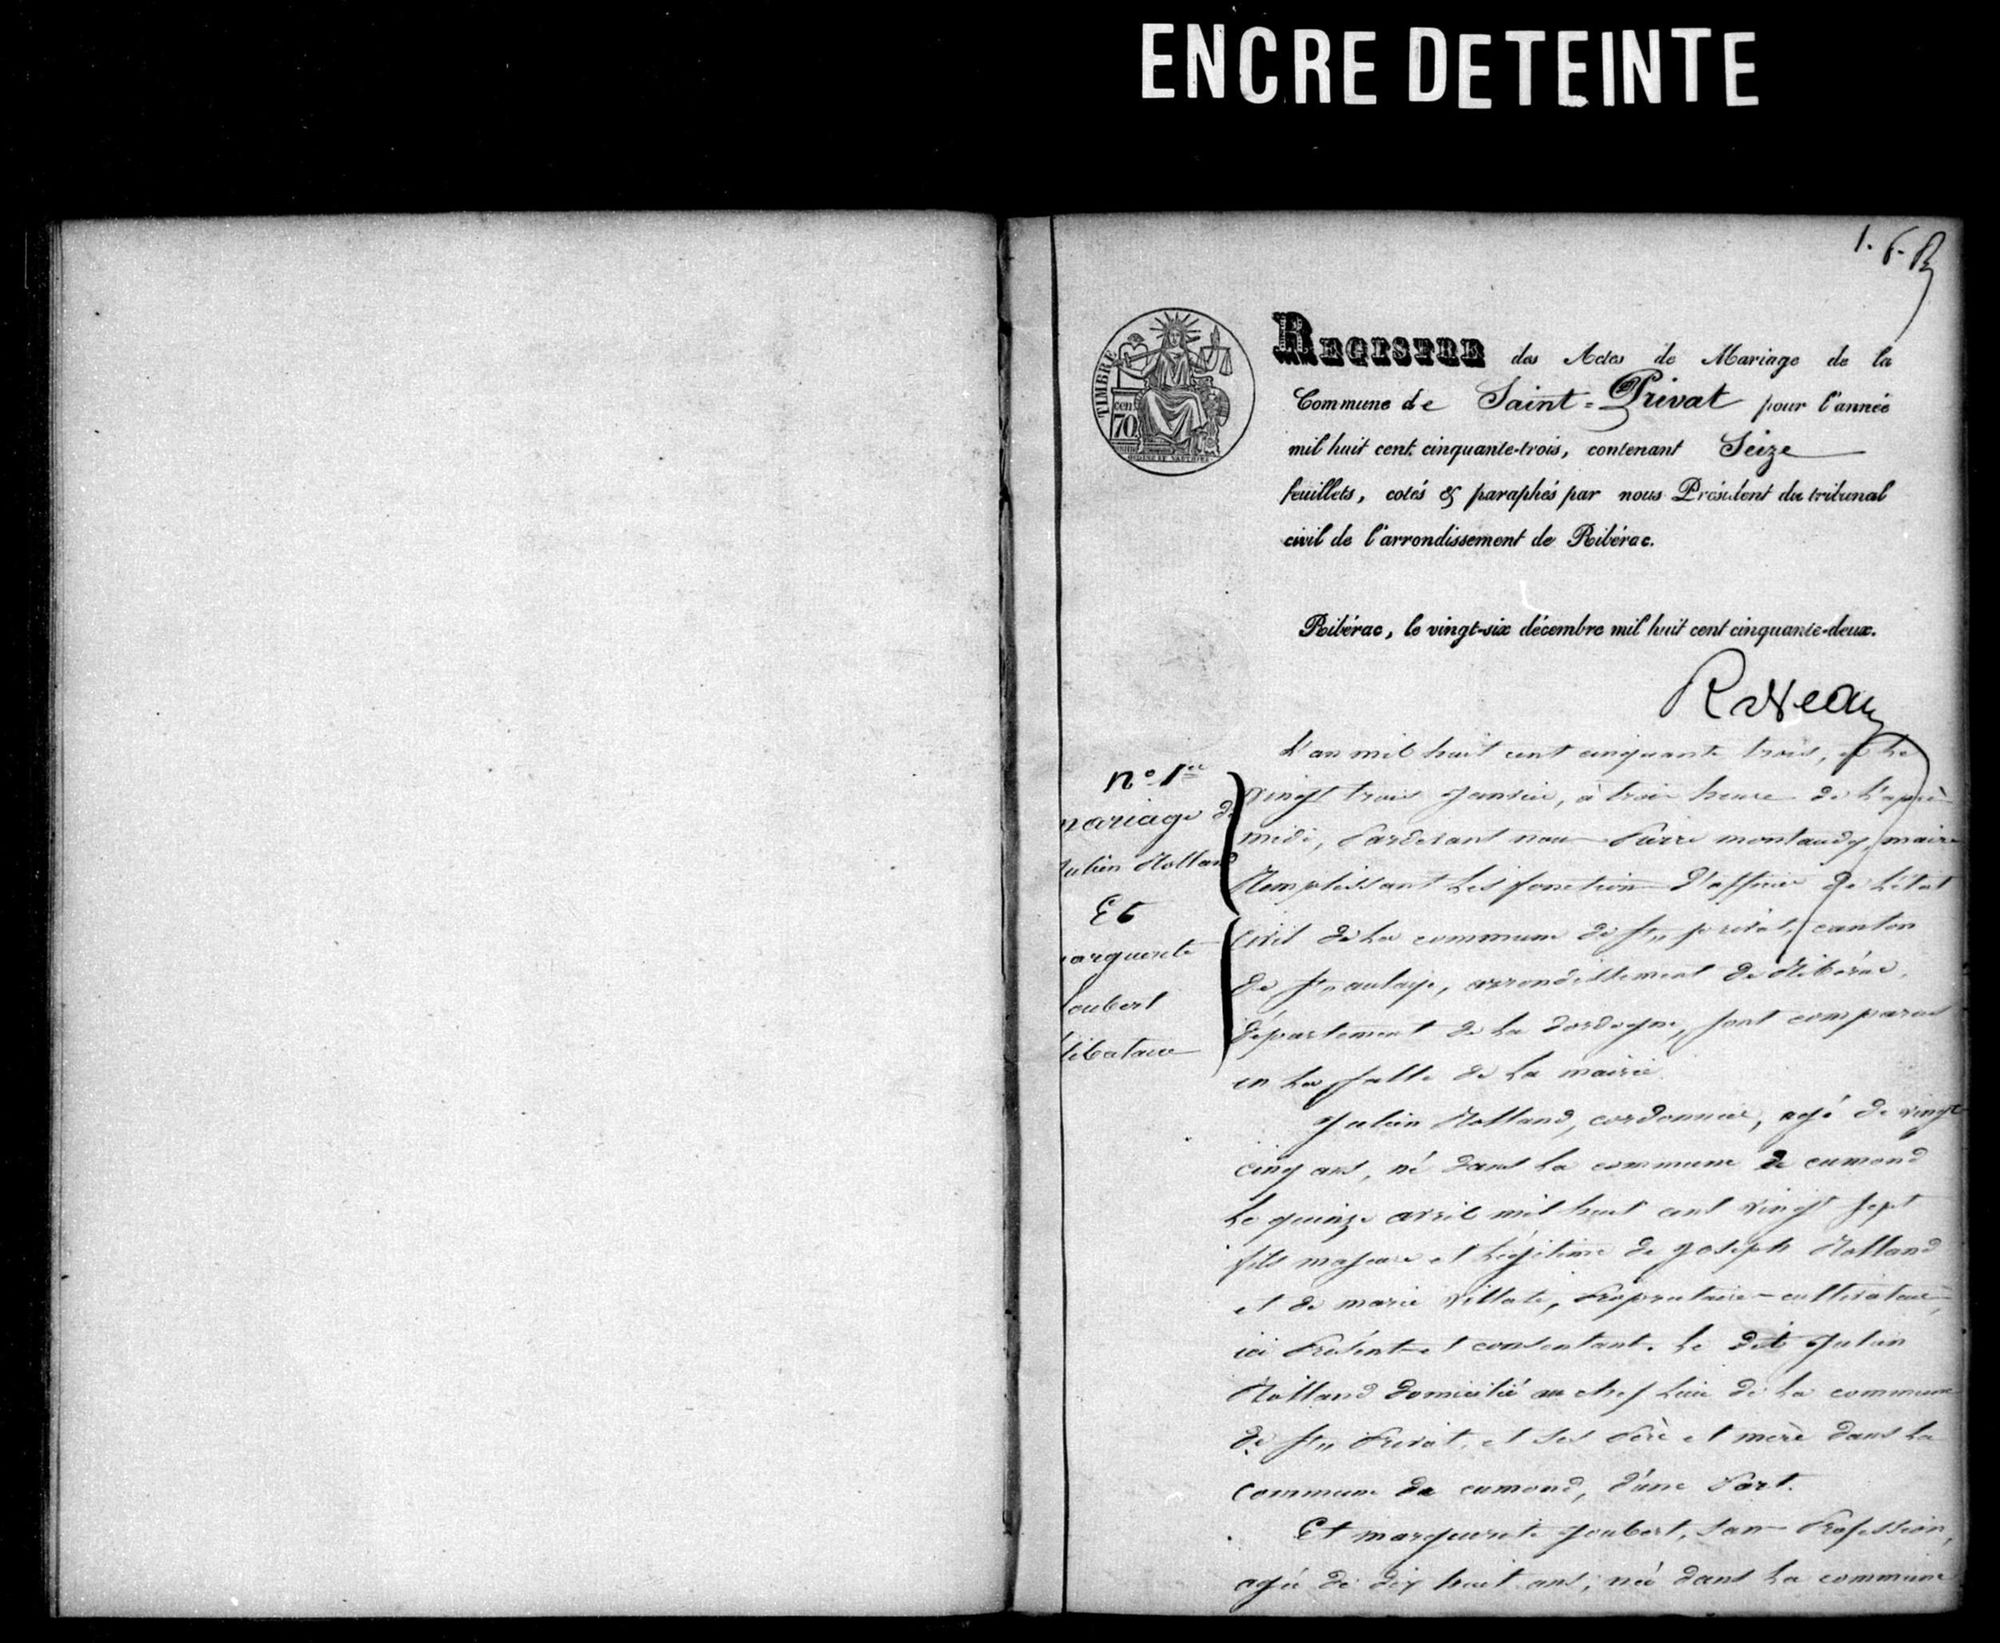 ENCRE DETEINTE
1. f. R
TIMBRE
cen
70
REGISTRE des Actes de Mariage de la
Commune de Saint=Privat pour l'année
mil huit cent cinquante-trois, contenant Seize
feuillets, cotés & paraphés par nous Président du tribunal
civil de l'arrondissement de Ribérac.
Ribérac, le vingt-six décembre mil huit cent cinquante-deux.
n° 1er
mariage de
Julien Rolland
Et
marguerite
Joubert
L'an mil huit cent cinquante trois, et le
vingt trois Janvier, à trois heure de l'après
midi, Pardevant nous Pierre montaudy, maire
Remplissant les fonction d'officier de l'état
civil de la commune de St privat, canton
de Ste aulaye, arrondissement de Ribérac,
département de la dordogne, sont comparus
en la salle de la mairie
Julien Rolland, cordonnier, agé de vingt
cinq ans, né dans la commune de cumond
le quinze avril mil huit cent vingt sept
fils majeure et légitime de Joseph Rolland
et de marie Villate, Propriétaire-cultivateur,
ici Présent et consentant. le dit Julien
Rolland domicilié au chef lieu de la commune
de St Privat, et ses Père et mère dans la
commune de cumond, d'une Part.
Et marguerite Joubert, sans Profession,
agée de dix huit ans, née dans la commune